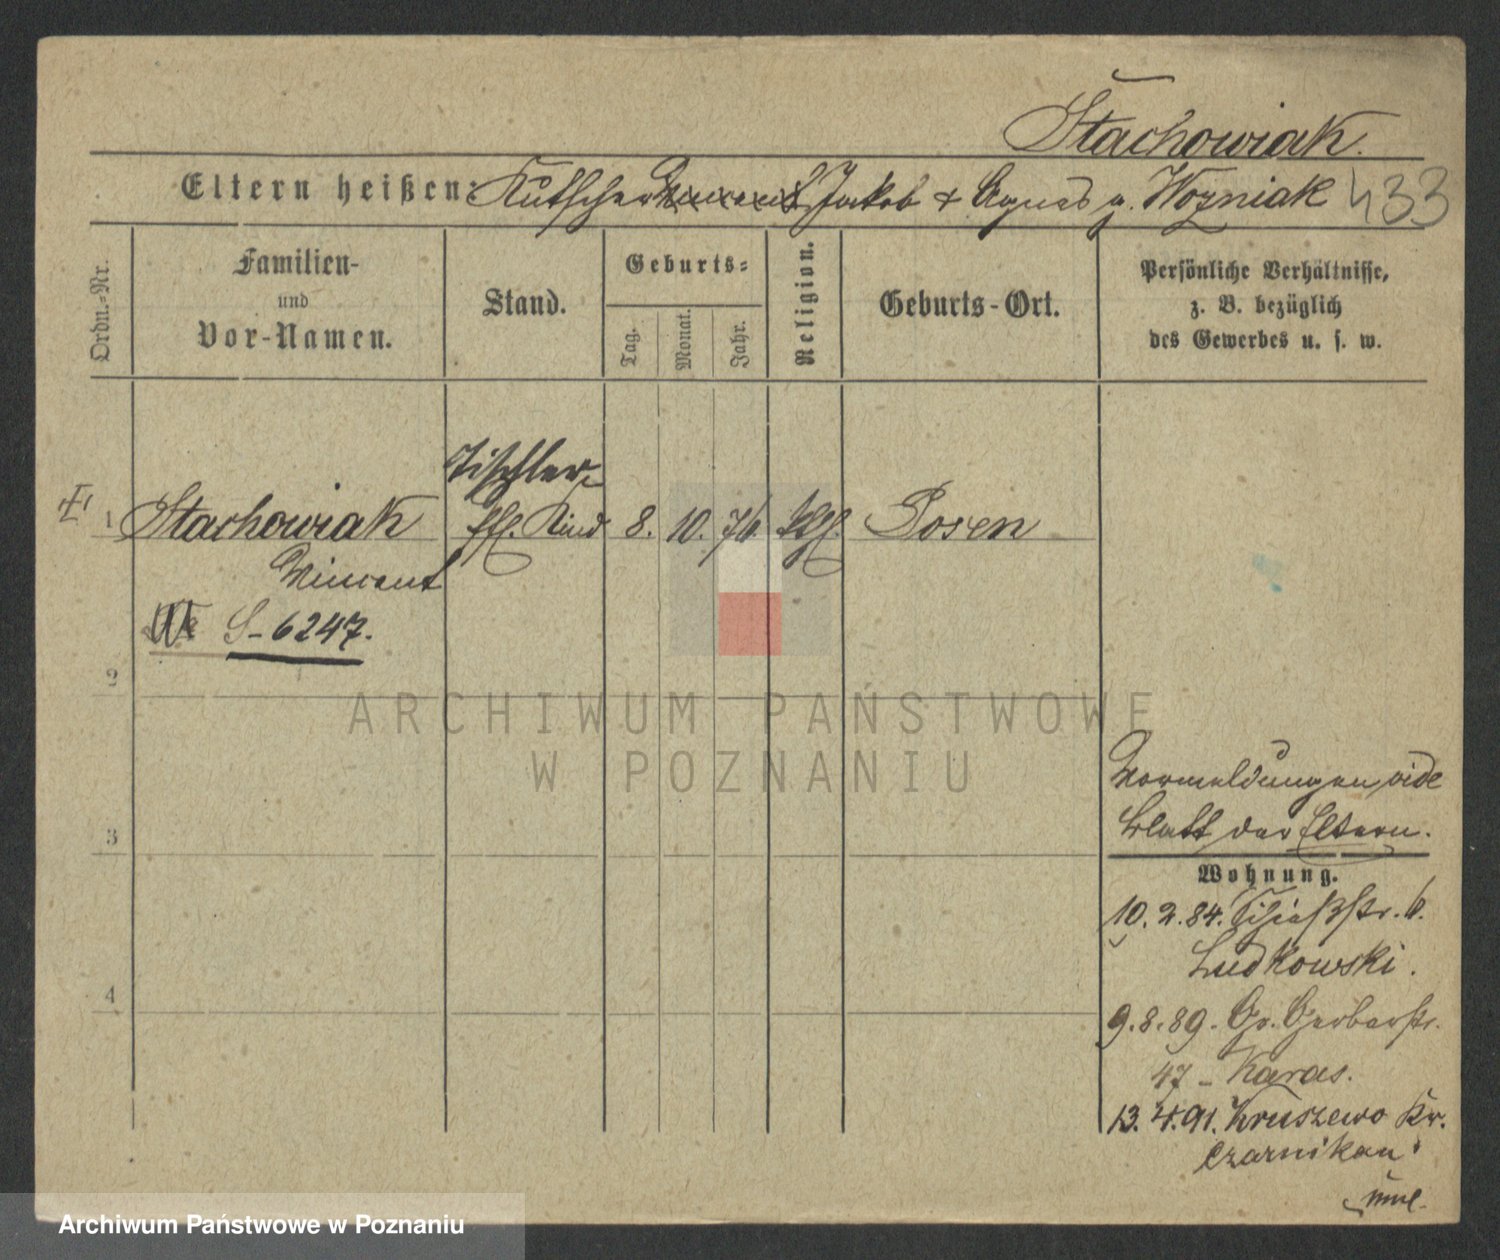 Stachowiak.
Eltern heißen: Kutscher Vincent Jakob & Agnes g. Wozniak 433
Ordn.-Nr.
Familien-
und
Vor-Namen.
Stand.
Geburts-
Tag.
Monat.
Jahr.
Religion.
Geburts-Ort.
Persönliche Verhältnisse,
z. B. bezüglich
des Gewerbes u. s. w.
Tischler
1 Stachowiak Kind 8. 10. 76 kth. Posen
Vincent
S-6247.
2
ARCHIWUM PAŃSTWOWE
W POZNANIU
Vormeldungen vide
Blatt der Eltern.
3
Wohnung.
10.2.84. Schießstr. 6.
Ludkowski.
4
9.8.89. Gr. Gerberstr.
47 - Karas.
13.4.91. Kruszewo Kr.
Czarnikau
Archiwum Państwowe w Poznaniu